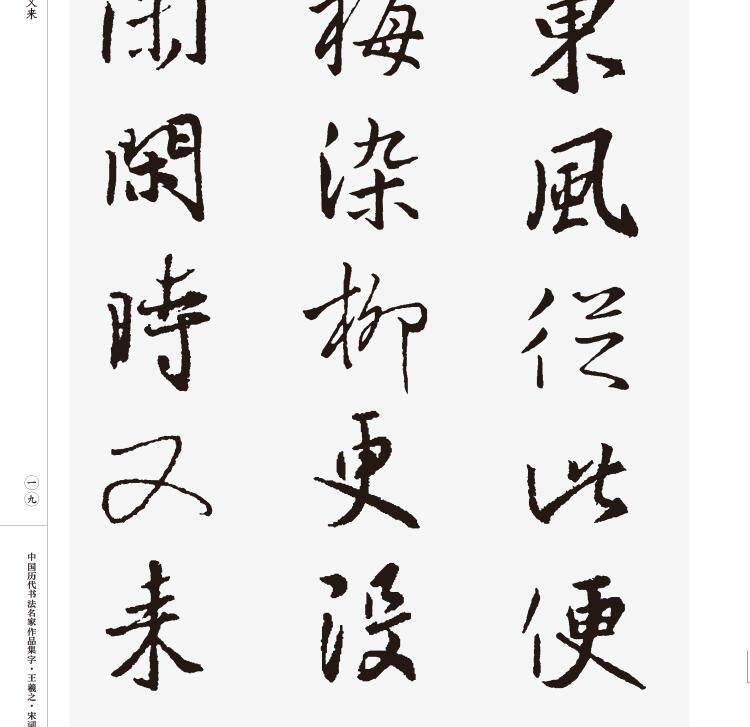 東風從此便
梅染柳更沒
閑閑時又来
又来
一九
中国历代书法名家作品集字·王羲之·宋词